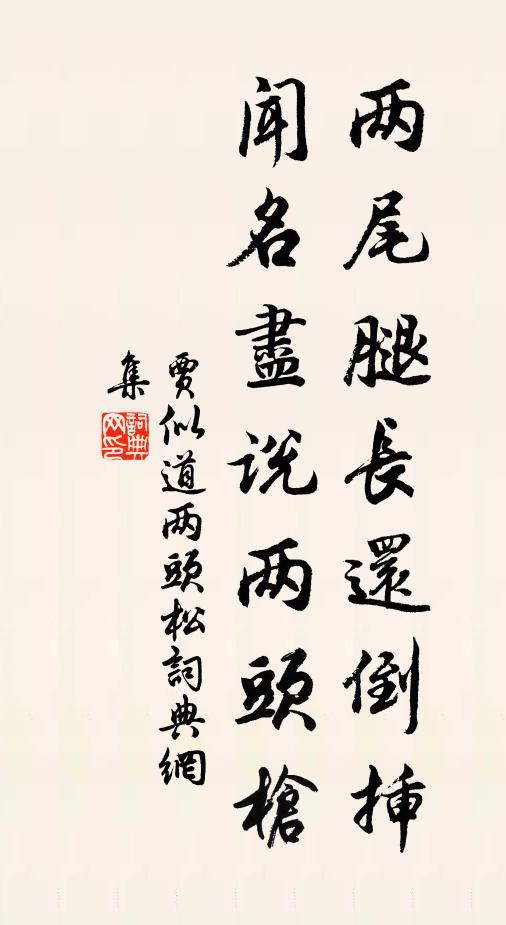 两尾腿長還倒挿
聞名盡说两頭槍
賈似道两頭松詞典網
集
詞典网印